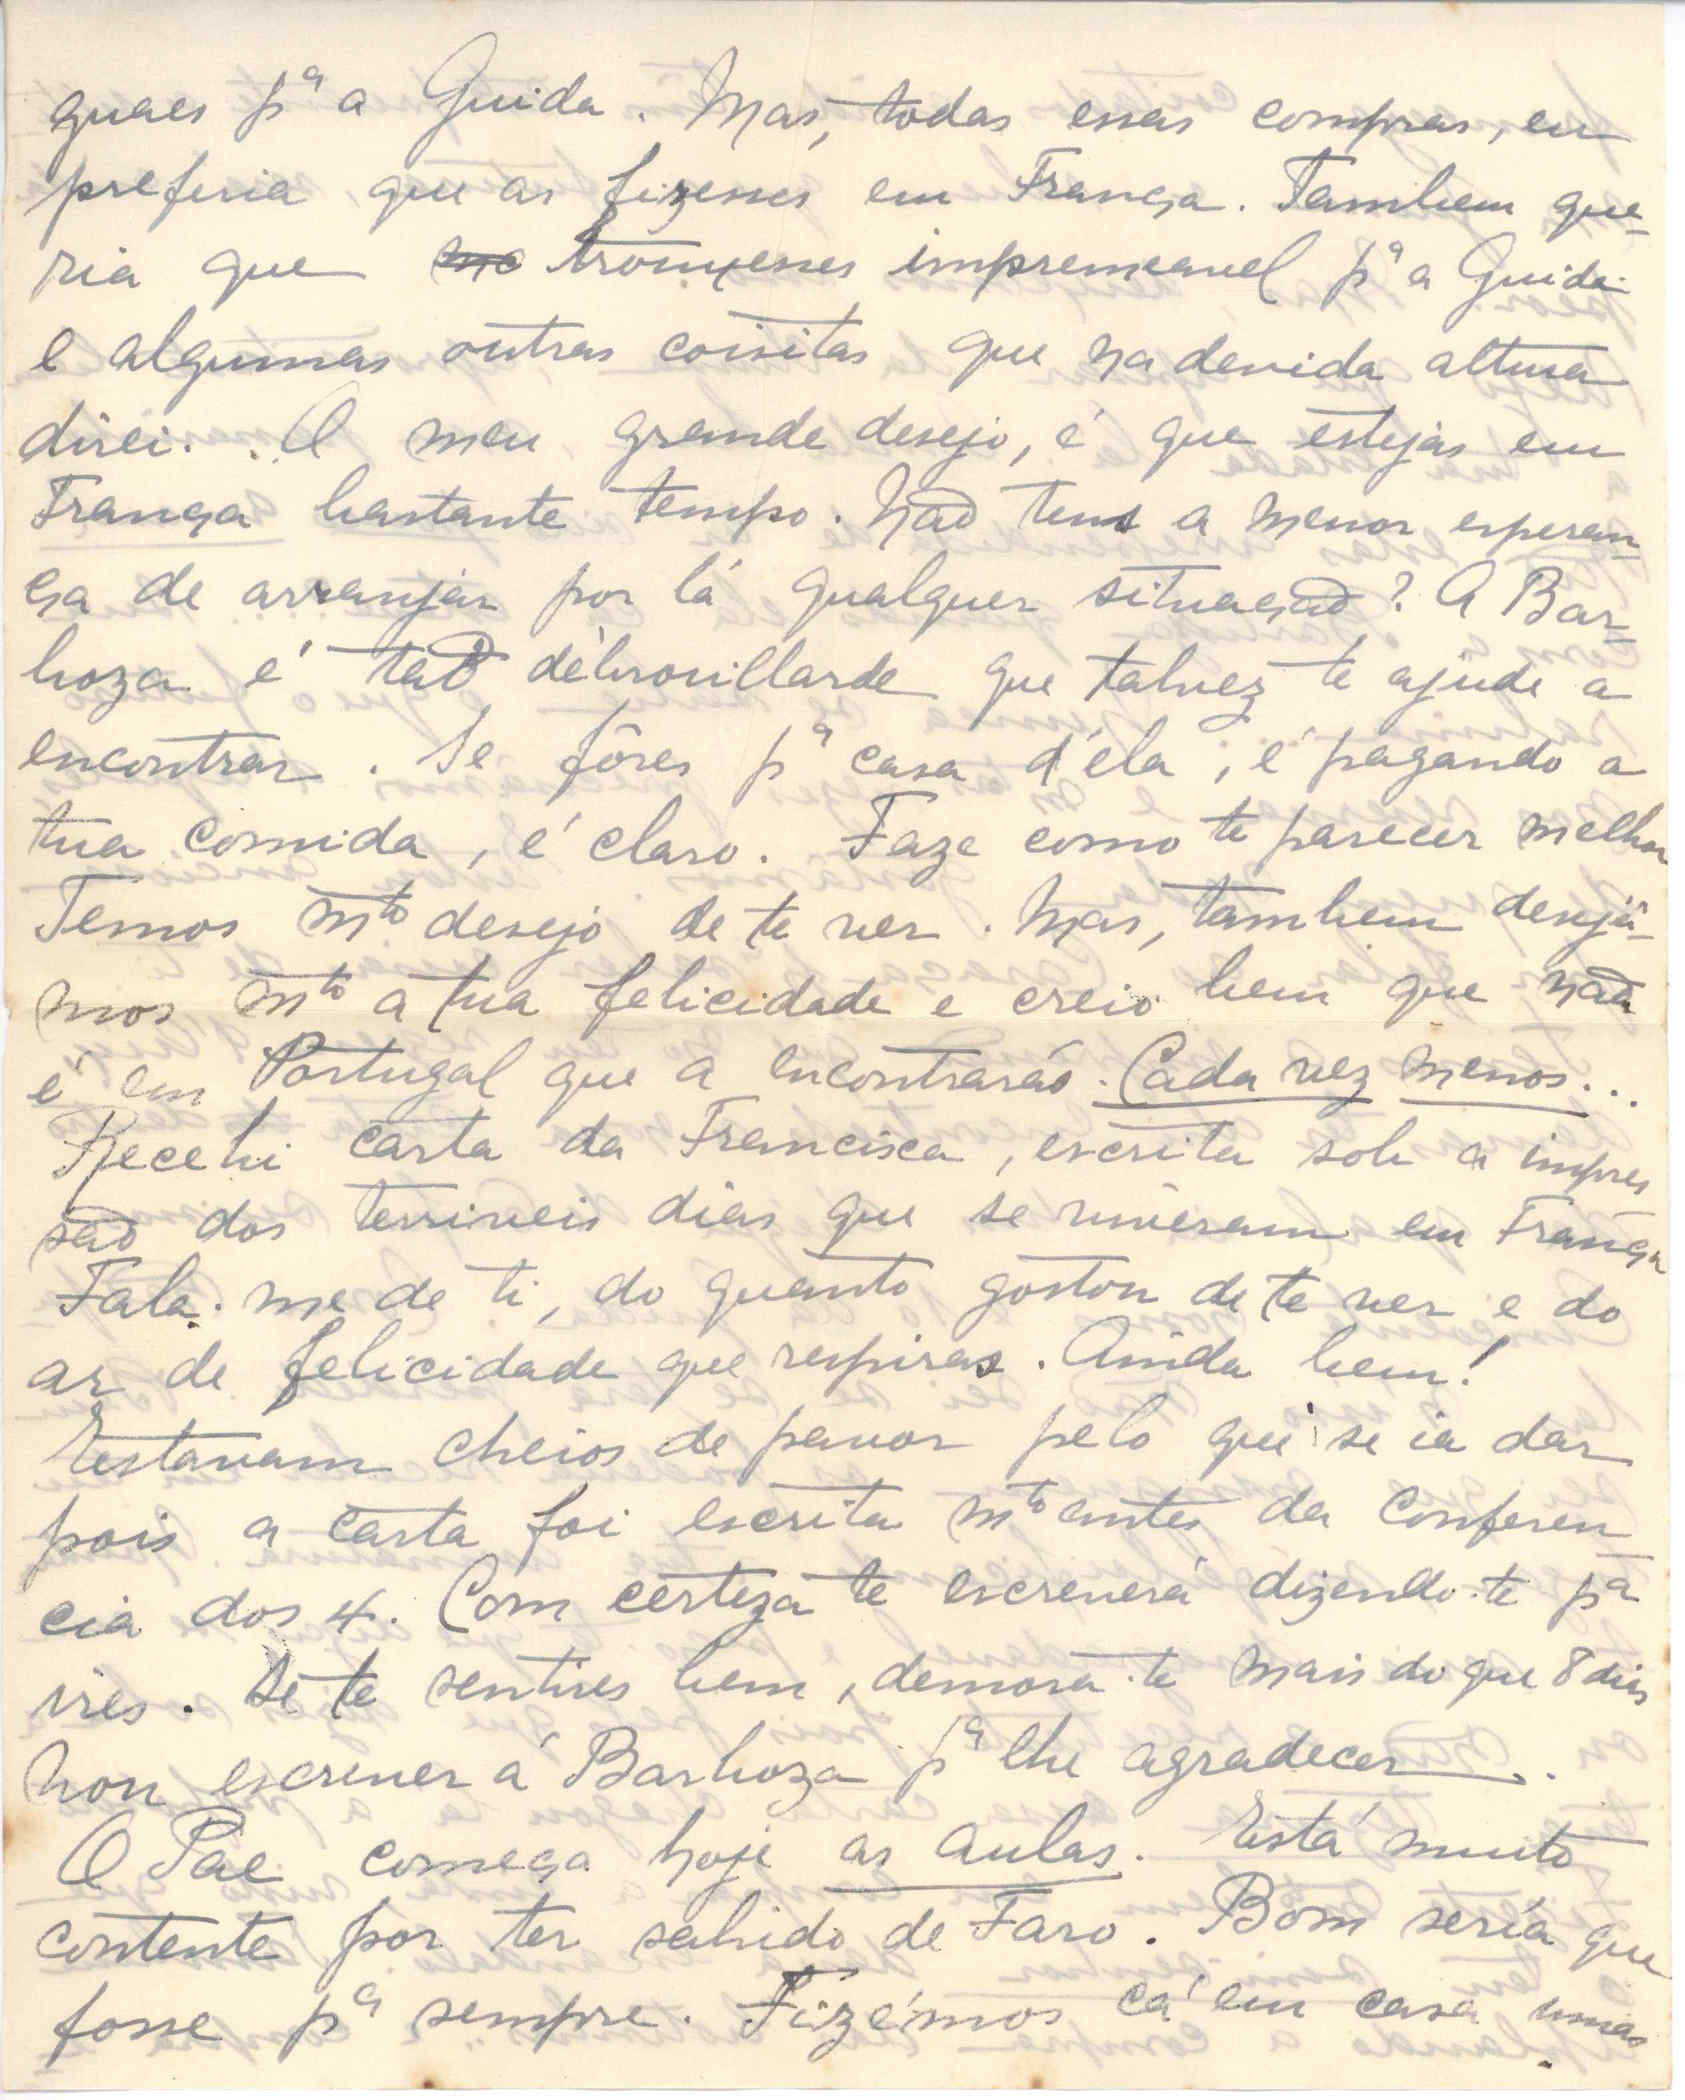 quaes pª a Guida. Mas, todas essas compras, eu
preferia que as fizesses em França. Tambem que-
ria que me trouxesses impremeavel pª a Guida
e algumas outras coisitas que na devida altura
direi. O meu grande desejo, é que estejas em
França bastante tempo. Não tens a menor esperan-
ça de arranjar por lá qualquer situação? A Bar-
boza é tão débrouillarde que talvez te ajude a
encontrar. Se fôres pª casa d'éla, é pagando a
tua comida, é claro. Faze como te parecer melhor
Temos mto desejo de te ver. Mas, tambem desejâ-
mos mto a tua felicidade e creio bem que não
é em Portugal que a encontrarás. Cada vez menos...
Recebi carta da Francisca, escrita sob a impres
são dos terriveis dias que se viveram em França
Fala-me de ti, do quanto gostou de te ver e do
ar de felicidade que respiras. Ainda bem!
Estavam cheios de pavor pelo que se ia dar
pois a carta foi escrita mto antes da Conferen
cia dos 4. Com certeza te escreverá dizendo-te pª
ires. Se te sentires bem, demora-te mais do que 8 dias
Vou escrever á Barboza pª lhe agradecer.
O Pae começa hoje as aulas. Está muito
contente por ter sahido de Faro. Bom sería que
fosse pª sempre. Fizémos cá em casa umas